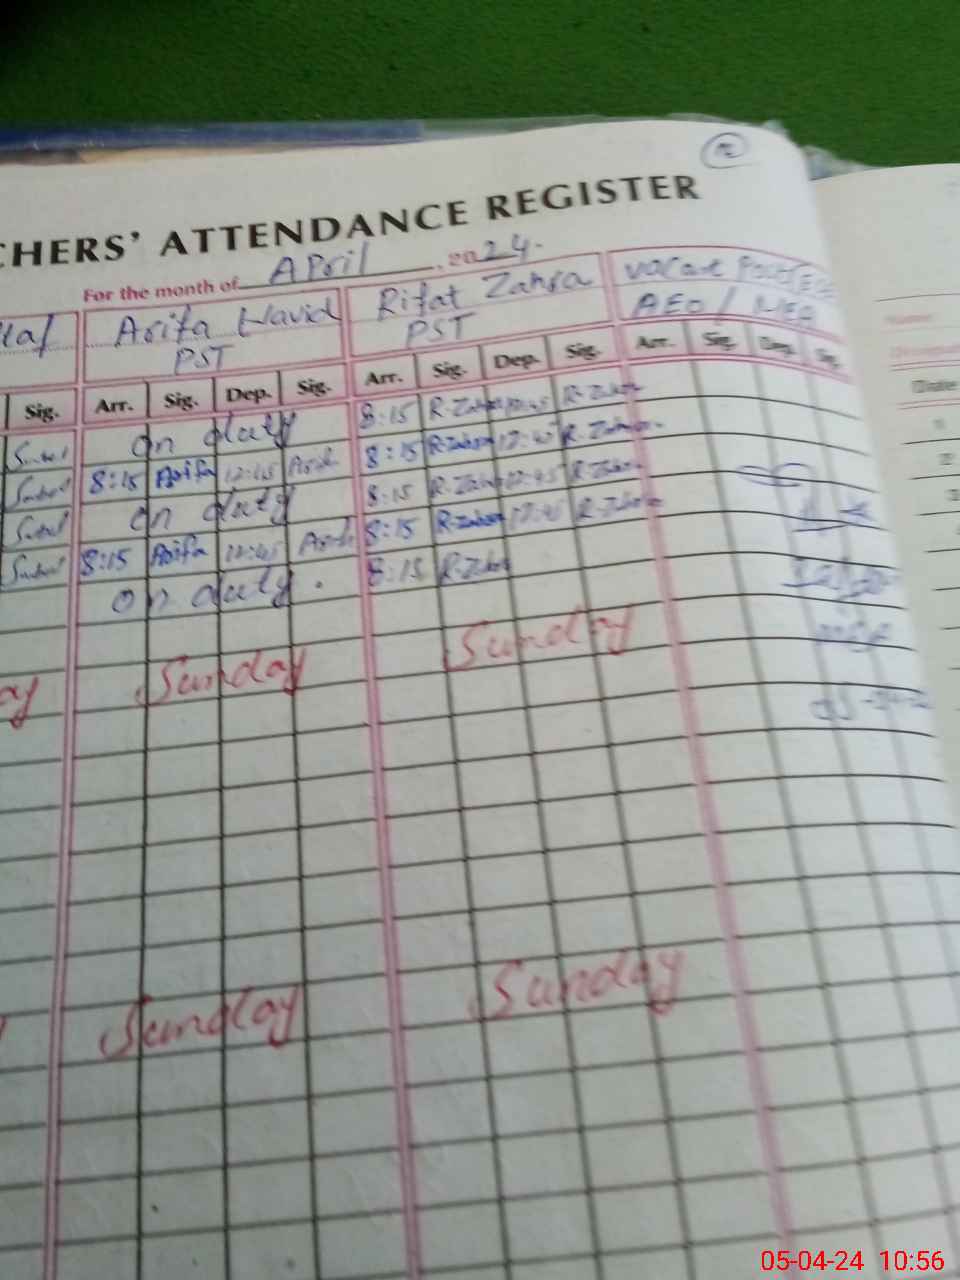 CHERS' ATTENDANCE REGISTER
For the month of April, 2024.
Arifa Navid Rifat Zahra vacant
PST PST AEO / MEA
Sig. Arr. Sig. Dep. Sig. Arr. Sig. Dep. Sig. Arr. Sig. Dep. Sig.
On duty 8:15 R-Zahra 12:45 R-Zahra
8:15 Arifa 12:45 Arifa 8:15 R-Zahra 12:45 R-Zahra
On duty 8:15 R-Zahra 12:45 R-Zahra
8:15 Arifa 12:45 Arifa 8:15 R-Zahra 12:45 R-Zahra
On duty. 8:15 R-Zahra
ay Sunday Sunday
Sunday Sunday
Date
05-04-24 10:56